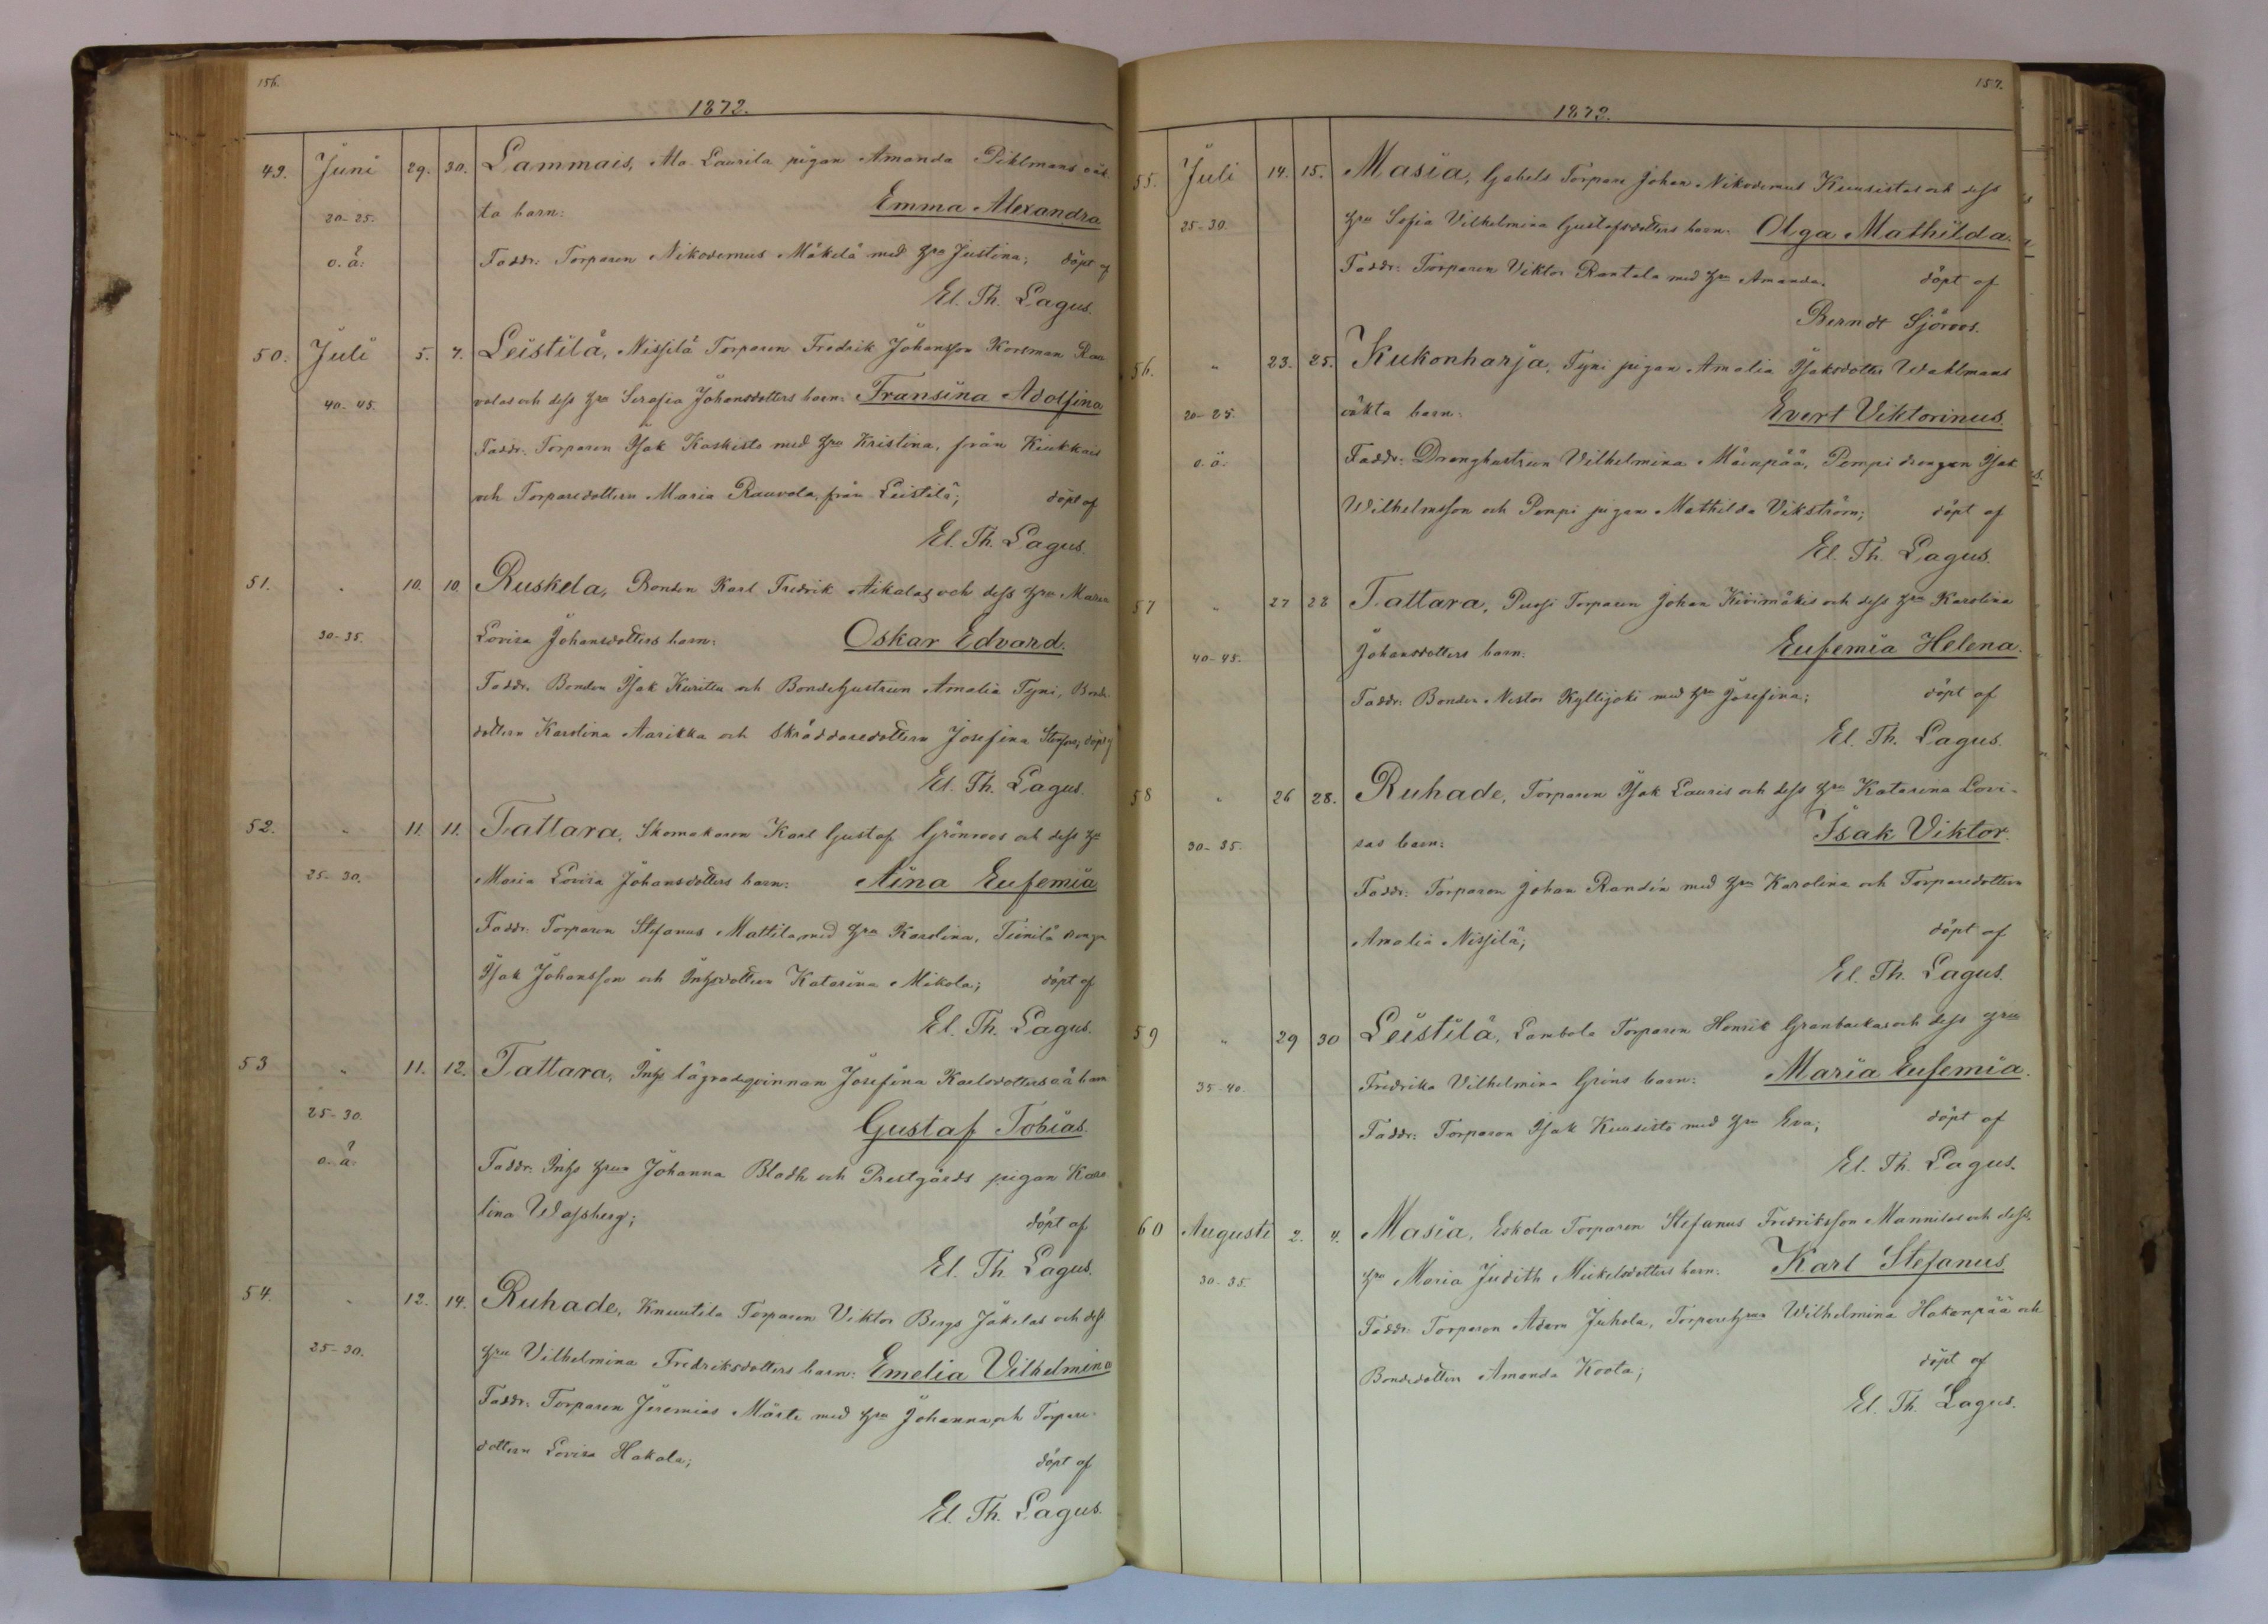 156.
1872.
49. Juni 29. 30. Lammais, Ala Laurila pigan Amanda Pihlmans oäk
20-25. ta barn: Emma Alexandra
o. ä. Faddr: Torparen Nikodemus Mäkelä med hru Justina; döpt af
El. Th. Lagus.
50. Juli 5. 7. Leistilä, Nissilä Torparen Fredrik Johansson Korsman Rau
40-45. volas och dess hru Serafia Johansdotters barn: Fransina Adolfina
Faddr: Torparen Isak Koskisto med hru Kristina, från Kiukkais
och Torparedottern Maria Rauvola, från Leistilä; döpt af
El. Th. Lagus.
51. " 10. 10. Ruskela, Bonden Karl Fredrik Aikalas och dess hru Maria
30-35. Lovisa Johansdotters barn: Oskar Edvard.
Faddr. Bonden Isak Kuritu och Bondehustrun Amalia Tyni, Bonde
dottern Karolina Aarikka och Skräddaredottern Josefina döpt af
El. Th. Lagus.
52. " 11. 11. Tattara, Skomakaren Karl Gustaf Grönroos och dess hru
25-30. Maria Lovisa Johansdotters barn: Aina Eufemia
Faddr: Torparen Stefanus Mattila med hru Karolina, Tiinilä drengen
Isak Johansson och Inhysdottern Katarina Mikola; döpt af
El. Th. Lagus.
53 " 11. 12. Tattara, Inhs lägradeqvinnan Josefina Karlsdotters o.ä. barn
25-30. Gustaf Tobias.
o. ä. Faddr: Inhs hrun Johanna Bladh och Prestgårds pigan Karo
lina Wassberg; döpt af
El. Th. Lagus.
54. " 12. 14. Ruhade, Knuutila Torparen Viktor Bergs Jäkelas och dess
25-30. hru Vilhelmina Fredriksdotters barn: Emelia Vilhelmina
Faddr: Torparen Jeremias Märte med hru Johanna, och Torpare-
dottern Lovisa Hakala; döpt af
El. Th. Lagus.
157.
1872.
55. Juli 14. 15. Masia, Gahels Torpare Johan Nikodemus Kuusistos och dess
25-30. hru Sofia Vilhelmina Gustafsdotters barn: Olga Mathilda.
Faddr: Torparen Viktor Rantala med hru Amanda. döpt af
Berndt Sjöroos.
56. " 23. 25. Kukonharja, Tyni pigan Amalia Isaksdotter Wahlmans
20-25. oäkta barn: Evert Viktorinus.
o. ä. Faddr: Dränghustrun Vilhelmina Mäenpää, Pompi drengen Isak
Wilhelmsson och Pompi pigan Mathilda Vikström; döpt af
El. Th. Lagus.
57 " 27 28 Tattara, Puosi Torparen Johan Kivimäkis och dess hru Karolina
40-45. Johansdotters barn: Eufemia Helena.
Faddr: Bonden Nestor Kyllijoki med hru Josefina; döpt af
El. Th. Lagus.
58 " 26 28. Ruhade, Torparen Isak Lauris och dess hru Katarina Lovi-
30-35. sas barn: Isak Viktor.
Faddr: Torparen Johan Randén med hru Karolina och Torparedottern
Amalia Nissilä; döpt af
El. Th. Lagus.
59 " 29 30 Leistilä, Lambola Torparen Henrik Granbackas och dess hru
35-40. Fredrika Vilhelmina Gröns barn: Maria Eufemia.
Faddr: Torparen Isak Kuusisto med hru Eva; döpt af
El. Th. Lagus.
60 Augusti 2. 4. Masia, Eskola Torparen Stefanus Fredriksson Mannilas och dess
30-35. hru Maria Judith Mickelsdotters barn: Karl Stefanus
Faddr: Torparen Adam Juhola, Torparehrun Wilhelmina Hakanpää och
Bondedottern Amanda Koota; döpt af
El. Th. Lagus.